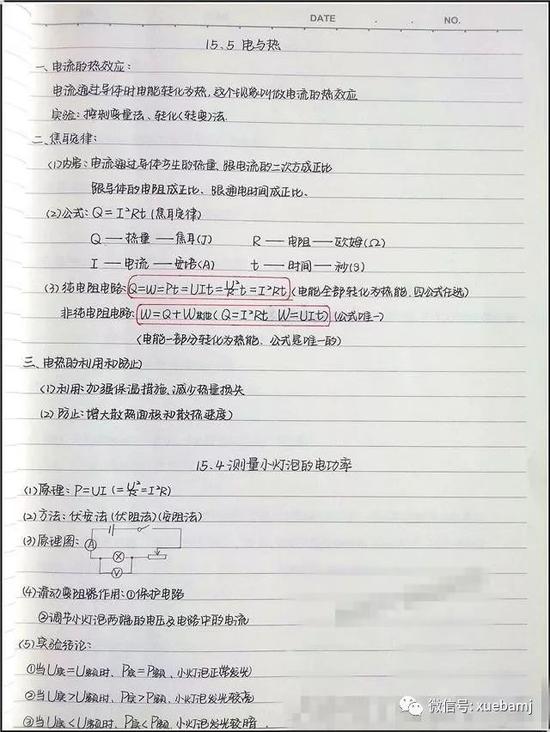 DATE NO.
15.5 电与热
一、电流的热效应:
电流通过导体时电能转化为热,这个现象叫做电流的热效应
实验:控制变量法、转化(转换)法.
二、焦耳定律:
(1)内容:电流通过导体产生的热量、跟电流的二次方成正比
跟导体的电阻成正比、跟通电时间成正比、
(2)公式:Q=I²Rt (焦耳定律)
Q — 热量 — 焦耳(J) R — 电阻 — 欧姆(Ω)
I — 电流 — 安培(A) t — 时间 — 秒(s)
(3)纯电阻电路:Q=W=Pt=UIt=U²/R t=I²Rt (电能全部转化为热能、四公式任选)
非纯电阻电路:W=Q+W其他(Q=I²Rt W=UIt) (公式唯一)
(电能一部分转化为热能、公式是唯一的)
三、电热的利用和防止
(1)利用:加强保温措施、减少热量损失
(2)防止:增大散热面积和散热速度)
15.4 测量小灯泡的电功率
(1)原理:P=UI (=U²/R=I²R)
(2)方法:伏安法(伏阻法)(安阻法)
(3)原理图:
A
V
(4)滑动变阻器作用:①保护电路
②调节小灯泡两端的电压及电路中的电流
(5)实验结论:
①当U实=U额时、P实=P额、小灯泡正常发光
②当U实>U额时、P实>P额、小灯泡发光较亮
③当U实<U额时、P实<P额、小灯泡发光较暗.
微信号: xuebamj